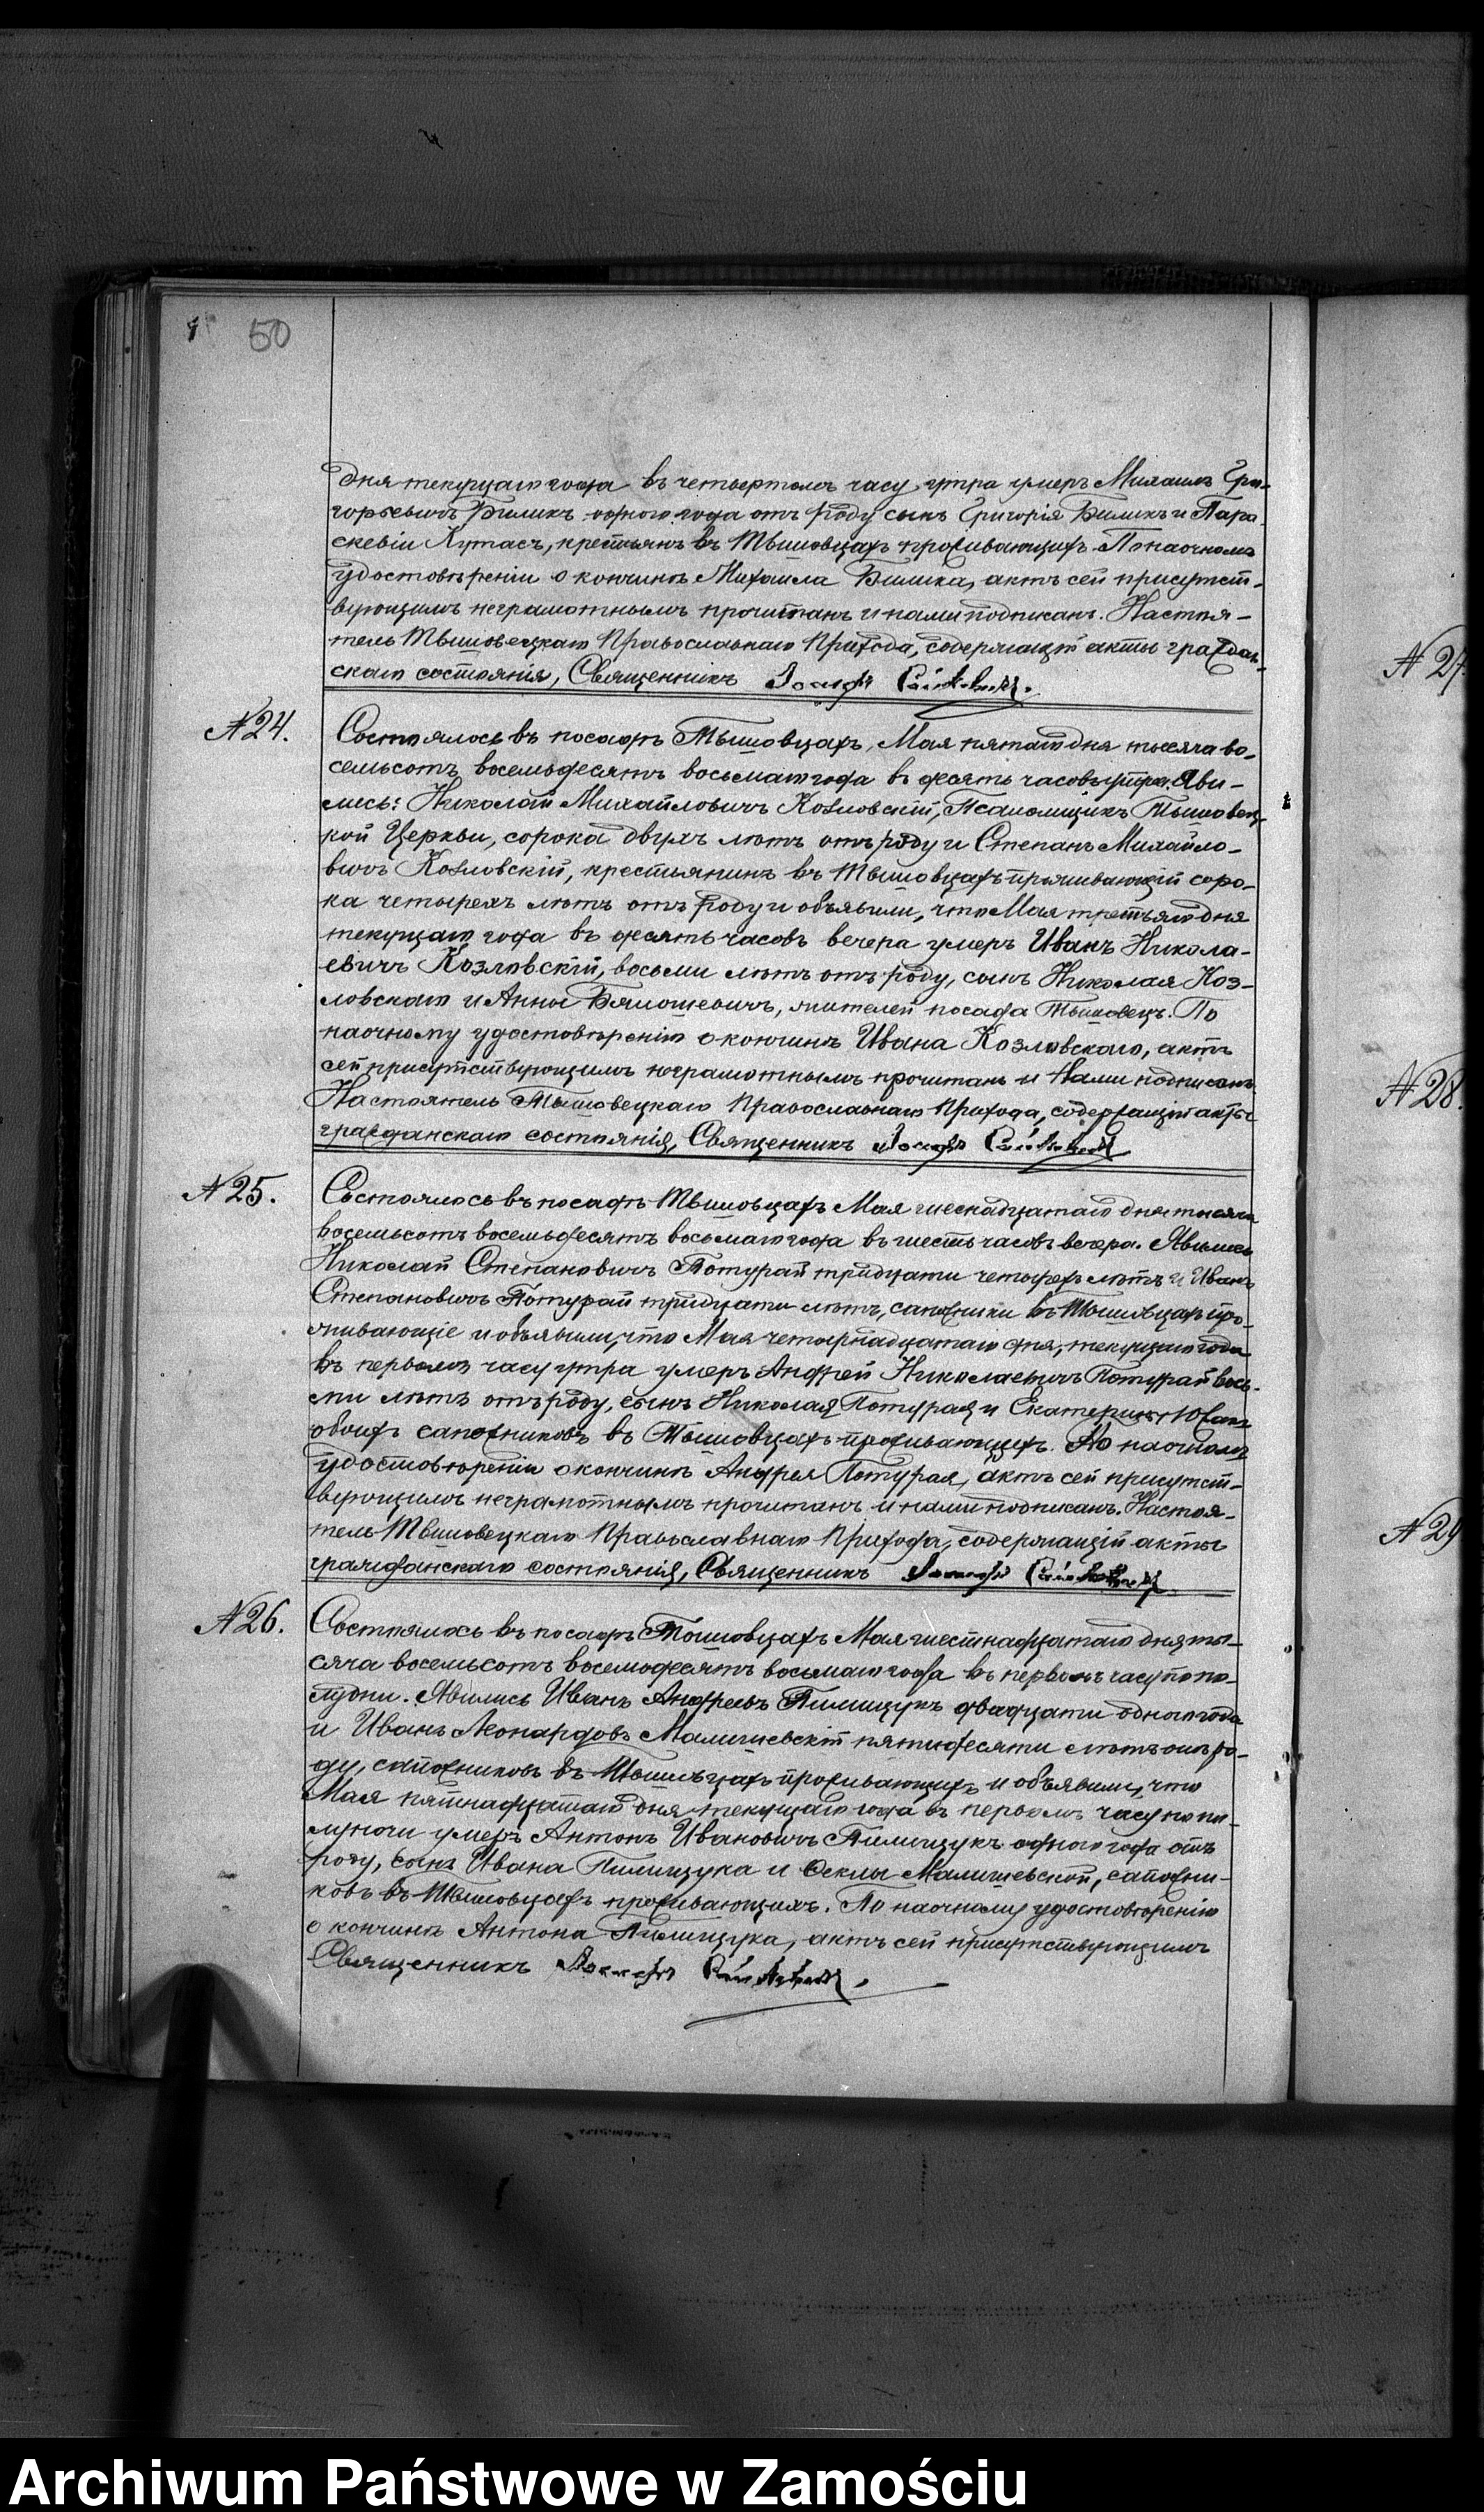 50
дня текущаго года въ четвертомъ часу утра умеръ Михаилъ Гри-
горьевичъ Биликъ одного года отъ роду сынъ Григорія Биликъ и Пара
скевіи Кутасъ, крестьянъ въ Тышовцахъ проживающихъ. По наочномъ
удостовѣреніи о кончинѣ Михаила Билика, актъ сей присутст-
вующимъ неграмотнымъ прочитанъ и нами подписанъ. Настоя-
тель Тышовецкаго Православнаго Прихода, содержащій акты граждан-
скаго состоянія, Священникъ Іосифъ
№ 24.
Состоялось въ посадѣ Тышовцахъ, Мая пятаго дня тысяча во-
семьсотъ восемьдесятъ восьмаго года въ десять часовъ утра. Яви-
лись: Николай Михайловичъ Козловскій, Псаломщикъ Тышовец-
кой Церкви, сорока двухъ лѣтъ отъ роду и Степанъ Михайло-
вичъ Козловскій, крестьянинъ въ Тышовцахъ проживающій соро-
ка четырехъ лѣтъ отъ роду и объявили, что Мая третьяго дня
текущаго года въ десять часовъ вечера умеръ Иванъ Никола-
евичъ Козловскій, восьми лѣтъ отъ роду, сынъ Николая Коз-
ловскаго и Анны Бялошевичъ, жителей посада Тышовецъ. По
наочному удостовѣренію о кончинѣ Ивана Козловскаго, актъ
сей присутствующимъ неграмотнымъ прочитанъ и Нами подписанъ
Настоятель Тышовецкаго Православнаго Прихода, содержащій акты
гражданскаго состоянія, Священникъ Іосифъ
№ 25.
Состоялось въ посадѣ Тышовцахъ Мая шеснадцатаго дня тысяча
восемьсотъ восемьдесятъ восьмаго года въ шесть часовъ вечера. Явились
Николай Степановичъ Потурай тридцати четырехъ лѣтъ и Иванъ
Степановичъ Потурай тридцати лѣтъ, сапожники въ Тышовцахъ про-
живающіе и объявили, что Мая четырнадцатаго дня, текущаго года
въ первомъ часу утра умеръ Андрей Николаевичъ Потурай вось-
ми лѣтъ отъ роду, сынъ Николая Потурая и Екатерины
обоихъ сапожниковъ въ Тышовцахъ проживающихъ. По наочномъ
удостовѣреніи о кончинѣ Андрея Потурая, актъ сей присутст-
вующимъ неграмотнымъ прочитанъ и нами подписанъ. Настоя-
тель Тышовецкаго Православнаго Прихода, содержащій акты
гражданскаго состоянія, Священникъ Іосифъ
№ 26.
Состоялось въ посадѣ Тышовцахъ Мая шестнадцатаго дня ты-
сяча восемьсотъ восемьдесятъ восьмаго года въ первомъ часу попо-
лудни. Явились Иванъ Андреевъ Пилищукъ двадцати одного года
и Иванъ Леонардовъ Малишевскій пятидесяти лѣтъ отъ ро-
ду, сапожниковъ въ Тышовцахъ проживающихъ и объявили, что
Мая пятнадцатаго дня текущаго года въ первомъ часу попо-
луночи умеръ Антонъ Ивановичъ Пилищукъ одного года отъ
роду, сынъ Ивана Пилищука и Феклы Малишевской, сапожни-
ковъ въ Тышовцахъ проживающихъ. По наочному удостовѣренію
о кончинѣ Антона Пилищука, актъ сей присутствующимъ
Священникъ Іосифъ
№ 27.
№ 28.
№ 29
Archiwum Państwowe w Zamościu